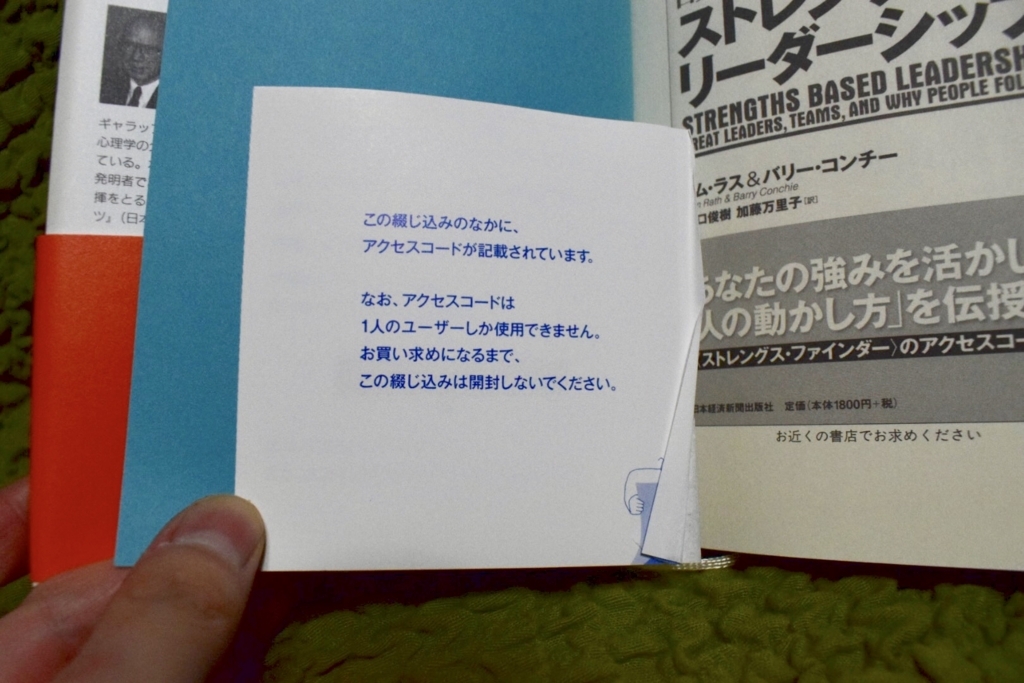 ギャラッ
心理学の
ている。
発明者で
揮をとる
ツ』（日本
この綴じ込みのなかに、
アクセスコードが記載されています。
なお、アクセスコードは
1人のユーザーしか使用できません。
お買い求めになるまで、
この綴じ込みは開封しないでください。
ストレン
リーダーシップ
STRENGTHS BASED LEADERSH
REAT LEADERS, TEAMS, AND WHY PEOPLE FOL
ム・ラス＆バリー・コンチー
Rath & Barry Conchie
口俊樹 加藤万里子[訳]
あなたの強みを活かし
人の動かし方」を伝授
〈ストレングス・ファインダー〉のアクセスコー
日本経済新聞出版社 定価(本体1800円+税)
お近くの書店でお求めください